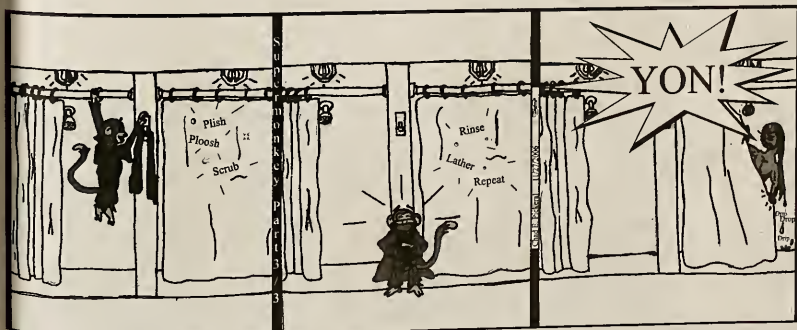 Plish
Ploosh
Scrub
Supermonkey Part 3/3
Rinse
Lather
Repeat
11/27/2006
YON!
Drop
Drop